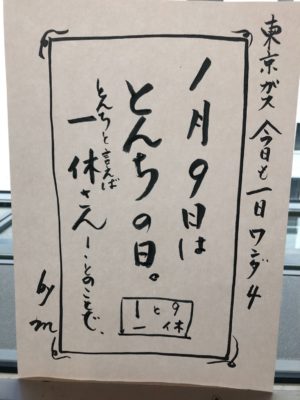 東京ガス 今日も一日ワンダ4
1月9日は
とんちの日。
とんちと言えば
一休さん―とのことで、
1と9
一 休
by m